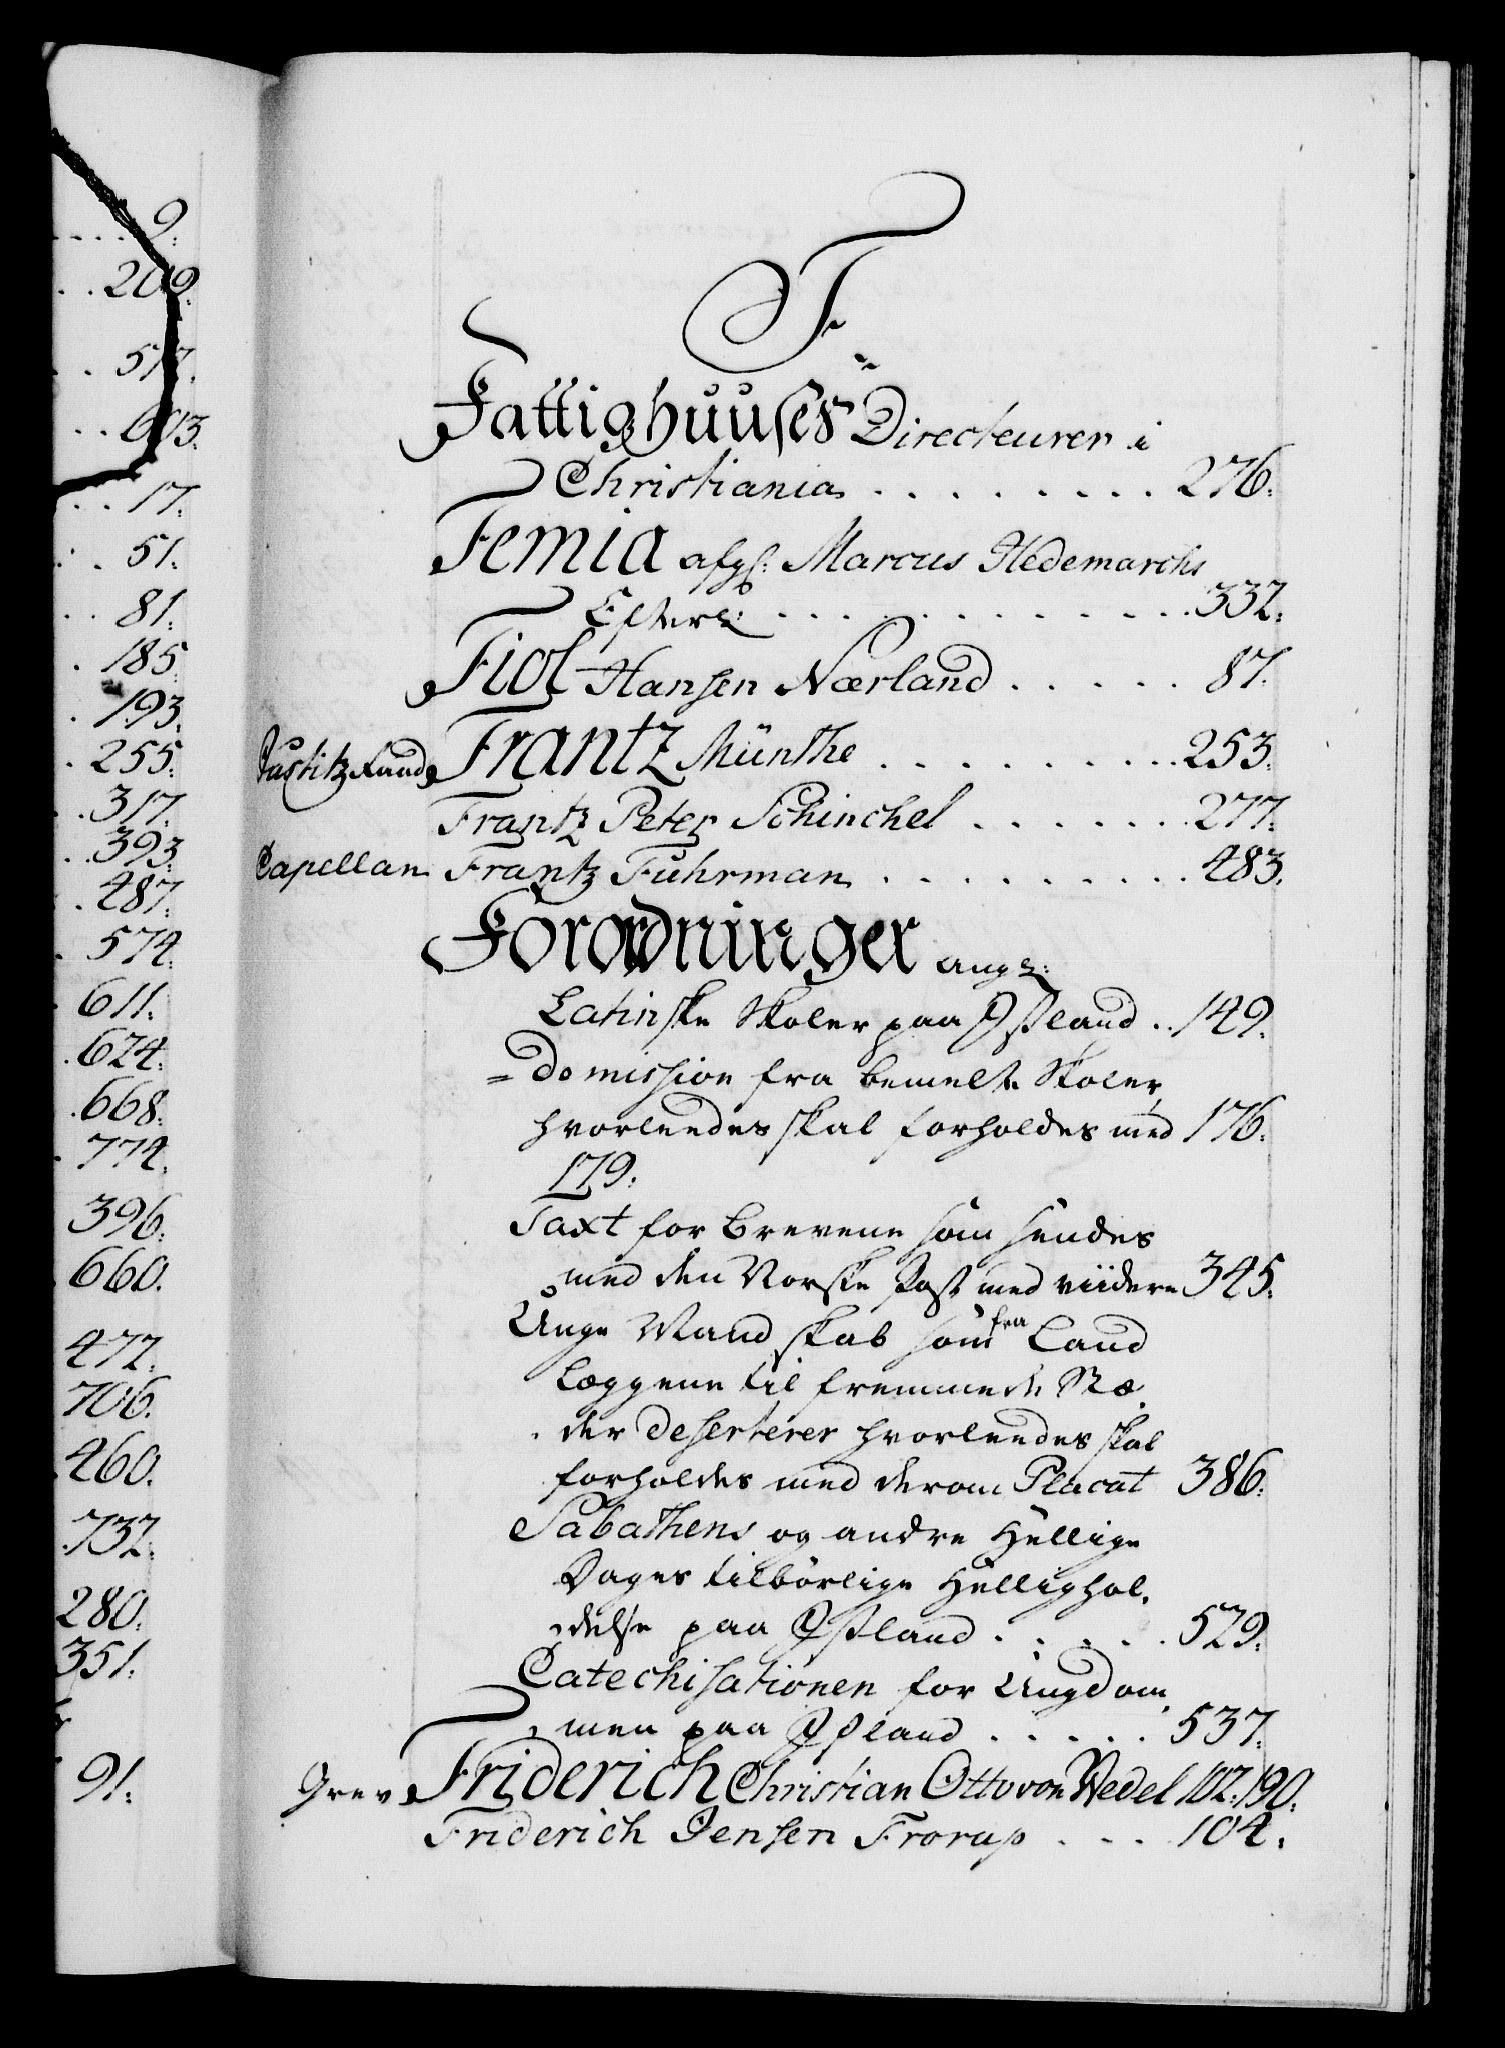 9:
209.
517.
603.
17:
51:
81:
185
193.
255:
317.
393:
487:
574:
611:
624:
668:
774:
396:
660.
477:
706.
460.
732:
280:
351:
91:
F
Fattighuuses Directeurer i
Christiania . . . . . . . . 276:
Femia afgl: Marcus Hedemarchs
Efterl: . . . . . . . . . . . 332:
Fiol Hansen Nærland . . . . . 87.
Justitz Raad Frantz Münthe . . . . . . . . . 253:
Frantz Peter Schinchel . . . . . . . 277:
Capellan Frantz Fuhrman . . . . . . . . . 483.
Forordninger ang:
Latinske Skoler paa Island . . 149.
= Domission fra bemelte Skoler,
hvorledes skal forholdes med 176.
179:
Taxt for brevene som sendes
med den Norske Post med viidere 345:
Unge Mandskab som fra Land
Læggene til fremmede Stæ-
der deserterer hvorledes skal
forholdes med derom Placat 386:
Sabathens og andre Hellige
Dages tilbørlige Helligehol-
delse paa Island . . . . . 529:
Catechisationen for Ungdom-
men paa Island . . . . . 537:
Grev Friderich Christian Otto von Wedel 102. 190:
Friderich Jensen Frorup . . . 104: